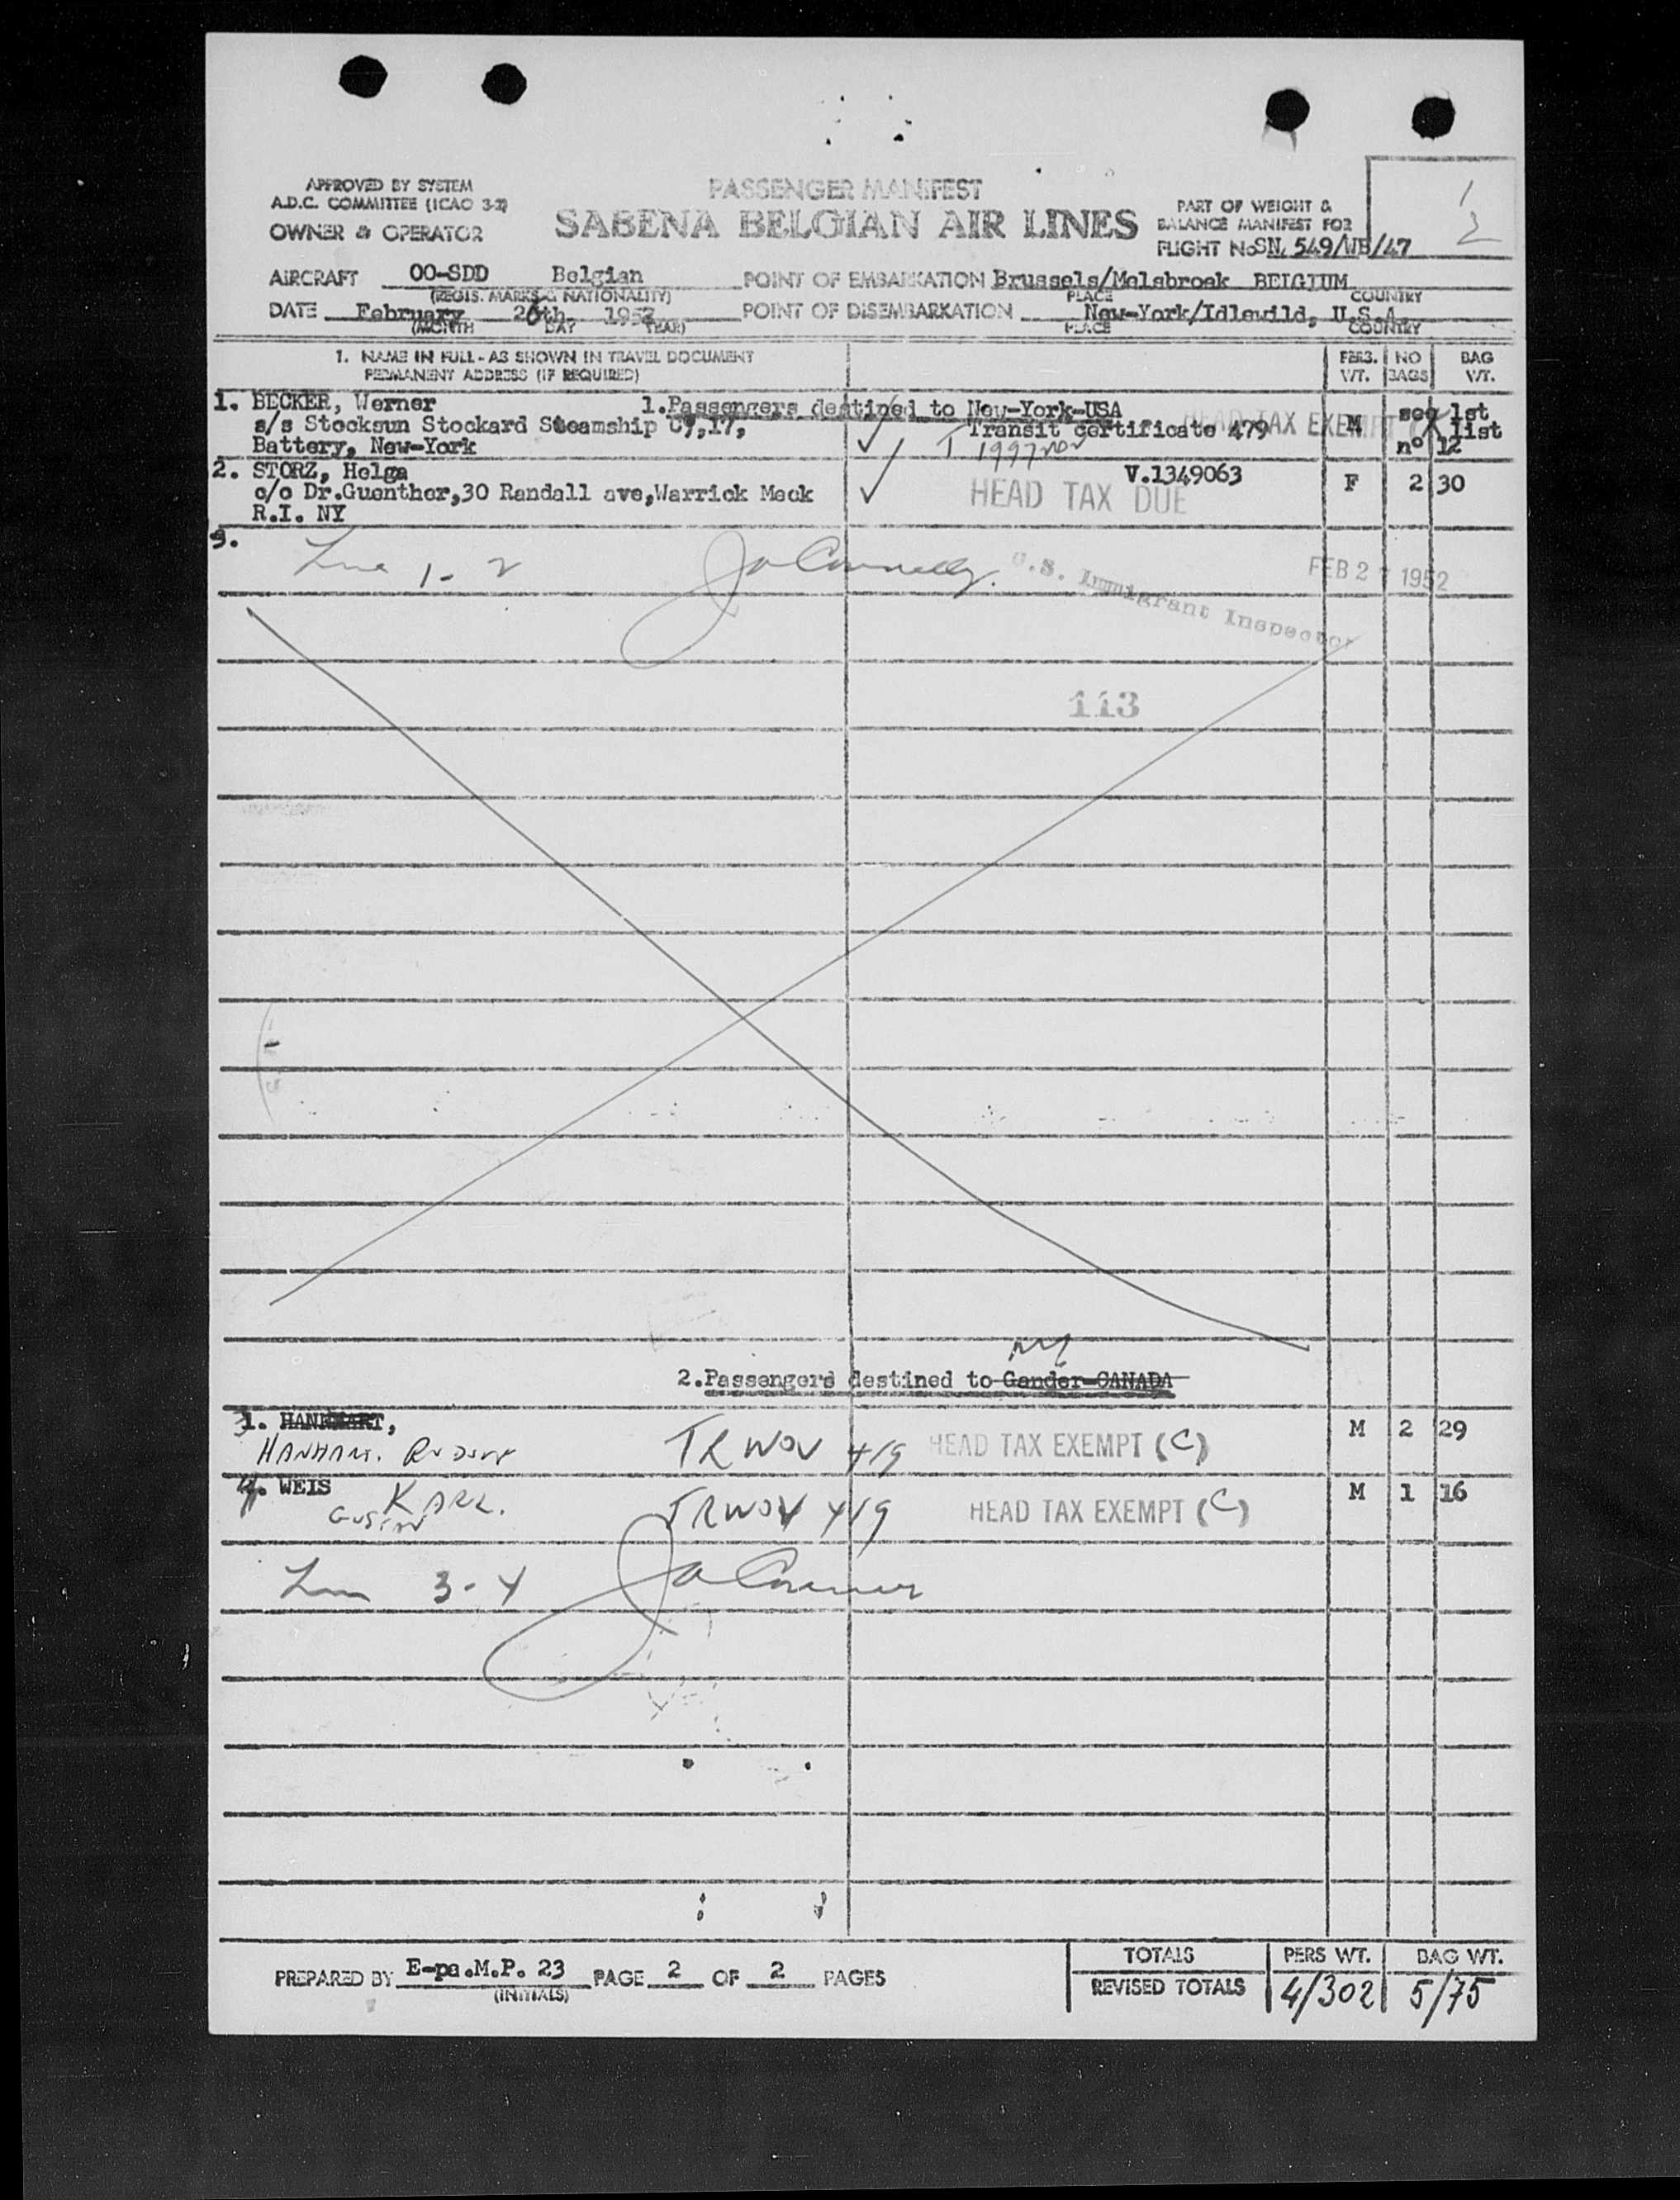 APPROVED BY SYSTEM
A.D.C. COMMITTEE (ICAO 3-2)
OWNER & OPERATOR
PASSENGER MANIFEST
SABENA BELGIAN AIR LINES
PART OF WEIGHT &
BALANCE MANIFEST FOR
FLIGHT No SN. 549/WB/47
1
2
AIRCRAFT OO-SDD Belgian POINT OF EMBARKATION Brussels/Melsbroek BELGIUM
(REGIS. MARKS & NATIONALITY) PLACE COUNTRY
DATE February 26th 1952 POINT OF DISEMBARKATION New-York/Idlewild, U.S.A.
(MONTH DAY YEAR) PLACE COUNTRY
1. NAME IN FULL - AS SHOWN IN TRAVEL DOCUMENT
PERMANENT ADDRESS (IF REQUIRED)
PERS. WT.
NO BAGS
BAG WT.
1. BECKER, Werner 1.Passengers destined to New-York-USA HEAD TAX EXEMPT M see 1st
s/s Stocksun Stockard Steamship C°,17, Transit certificate 479 list
Battery, New-York T 1997 n° 12
2. STORZ, Helga V.1349063 F 2 30
c/o Dr.Guenther,30 Randall ave,Warrick Meck HEAD TAX DUE
R.I. NY
3.
Line 1-2 U.S. Immigrant Inspector FEB 27 1952
113
NY
2.Passengers destined to Gander-CANADA
3 1. HANKHART, M 2 29
HANHART. TRWOV 419 HEAD TAX EXEMPT (C)
4. WEIS KARL. M 1 16
GUSTAV TRWOV 419 HEAD TAX EXEMPT (C)
Line 3-4
PREPARED BY E-pa.M.P. 23 PAGE 2 OF 2 PAGES
(INITIALS)
TOTALS PERS WT. BAG WT.
REVISED TOTALS 4/302 5/75